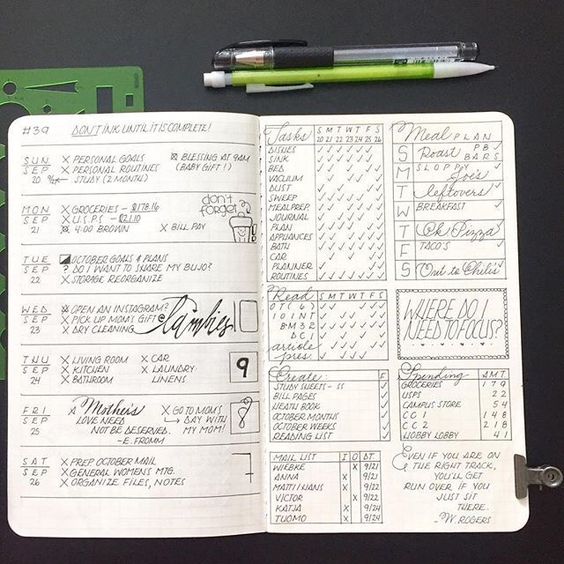 #39 DON'T INK UNTIL IT IS COMPLETE!
SUN SEP 20
X PERSONAL GOALS
X PERSONAL ROUTINES
STUDY (2 MONTH)
BLESSING AT 9AM
(BABY GIFT!)
MON SEP 21
X GROCERIES - $178.16
X U.S.P.S - $21.10
4:00 BROWN
X BILL PAY
don't forget
TUE SEP 22
OCTOBER GOALS & PLANS
? DO I WANT TO SHARE MY BUJO?
X STORAGE REORGANIZE
WED SEP 23
X OPEN AN INSTAGRAM?
X PICK UP MOM'S GIFT @ Lambies
X DRY CLEANING
THU SEP 24
X LIVING ROOM
X KITCHEN
X BATHROOM
X CAR
X LAUNDRY
LINENS
9
FRI SEP 25
A Mother's
LOVE NEED
NOT BE DESERVED.
-E. FROMM
X GO TO MOM'S
DAY WITH
MY MOM!
8
SAT SEP 26
X PREP OCTOBER MAIL
X GENERAL WOMENS MTG.
X ORGANIZE FILES, NOTES
7
Tasks S M T W T F S
20 21 22 23 24 25 26
DISHES
SINK
BED
VACUUM
DUST
SWEEP
MEAL PREP.
JOURNAL
PLAN
APPLIANCES
BATH
CAR
PLANNER
ROUTINES
Meal PLAN
S Roast PB BARS
M SLOPPY Joe's
T leftovers
W BREAKFAST
T Ck Pizza
F TACO'S
S Out to Chilis
Read
OT (6)
10 INT
BM 32
DC 1
article
pres.
WHERE DO I
NEED TO FOCUS?
Create: F
STUDY SHEETS - SS
BILL PAGES
HEATH BOOK
OCTOBER MONTHS
OCTOBER WEEKS
READING LIST
Spending AMT
GROCERIES 179
USPS 22
CAMPUS STORE 54
CC 1 148
CC 2 218
HOBBY LOBBY 41
MAIL LIST I O DT.
WIEBKE X 9/21
ANNA X 9/21
MATTI/NANS X 9/22
VICTOR X 9/22
KATJA X 9/24
TUOMO X 9/24
EVEN IF YOU ARE ON
THE RIGHT TRACK,
YOU'LL GET
RUN OVER IF YOU
JUST SIT
THERE.
-W. ROGERS